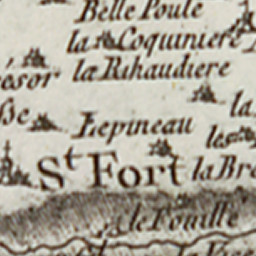 Belle Poule
la Coquiniere
ésor la Rihaudiere
la
Lepineau
les
St Fort la Br
le Fouille